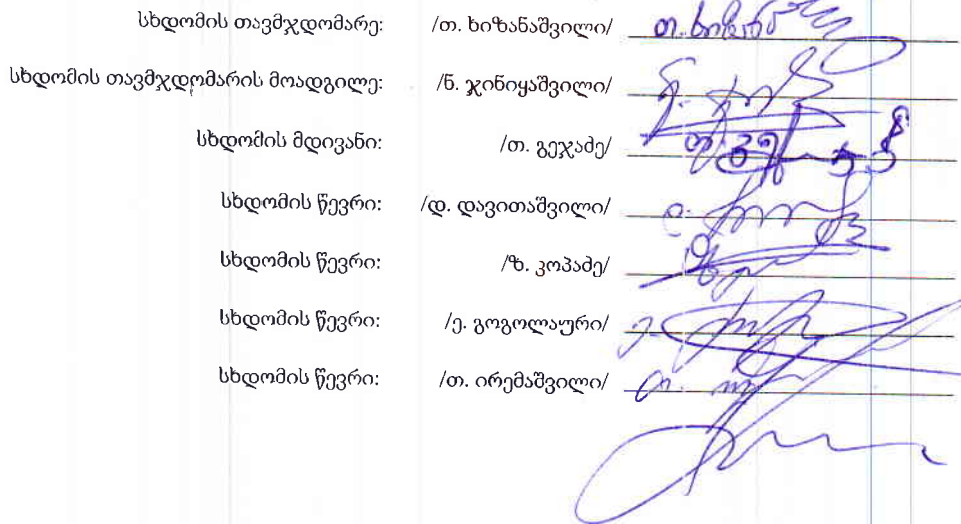 სხდომის თავმჯდომარე: /თ. ხიზანაშვილი/ თ. ხიზან
სხდომის თავმჯდომარის მოადგილე: /ნ. ჯინიყაშვილი/
სხდომის მდივანი: /თ. გეჯაძე/
სხდომის წევრი: /დ. დავითაშვილი/
სხდომის წევრი: /ზ. კოპაძე/
სხდომის წევრი: /ე. გოგოლაური/
სხდომის წევრი: /თ. ირემაშვილი/